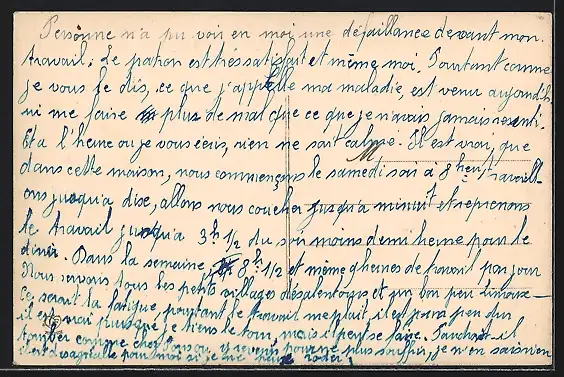 Personne n'a pu voir en moi une défaillance devant mon
travail. Le patron est très satisfait et même moi. Pourtant comme
je vous le dis, ce que j'appelle ma maladie, est venu aujourd'h
ui me faire plus de mal que ce que je n'avais jamais resenti.
Et a l'heure ou je vous écris, rien ne sait calmé. Il est vrai, que
dans cette maison, nous commençons le samedi soir a 8 heu, travaill-
ons jusqu'a dixe, allons nous coucher jusqu'a minuit et reprenons
le travail jusqu'a 3h 1/2 du soir moins demi heure pour le
diner. Dans la semaine 8h 1/2 et même 9 heures de travail par jour
Nous servons tous les petits villages désalentours et un bon peu Limoux-
Ce serait la fatigue, pourtant le travail me plait il est para peu dur
il est vrai puisque je tiens le tour, mais il peut se faire. Faudrait-il
tomber comme chez Ponsou, y revenir pour ne plus souffrir, je n'en sais rien
il est désagréable pour moi si je ne peux roder!